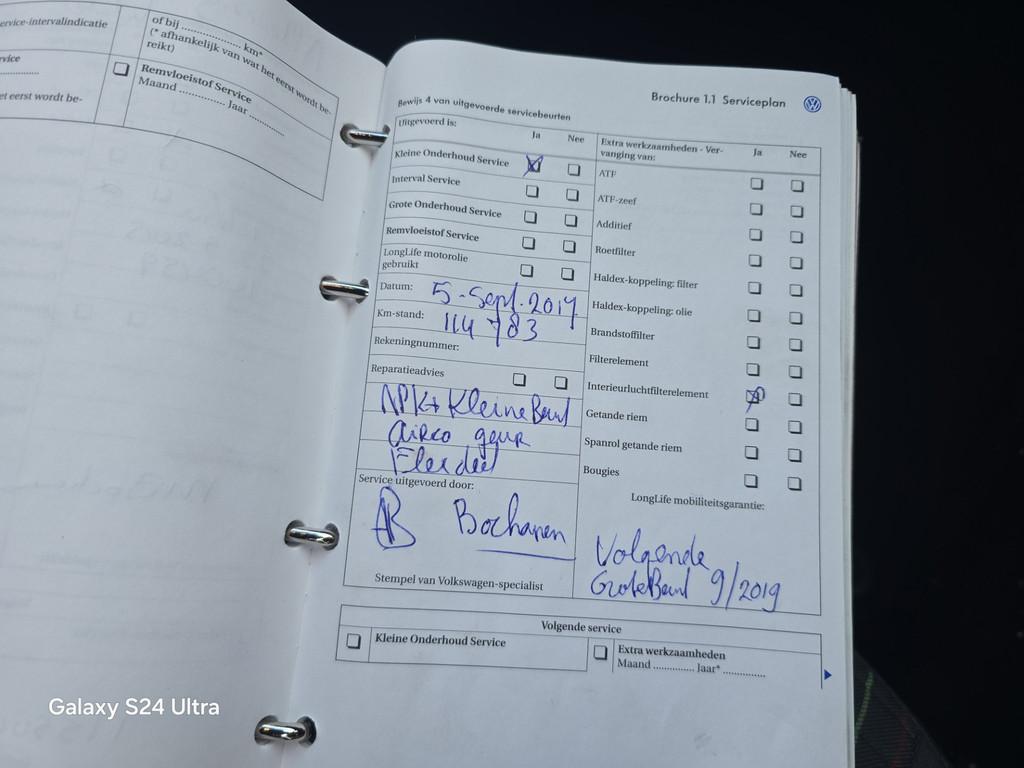 ervice-intervalindicatie
of bij .................. km*
(* afhankelijk van wat het eerst wordt be-
reikt)
rvice
et eerst wordt be-
Remvloeistof Service
Maand .............. Jaar ............
Brochure 1.1 Serviceplan
Bewijs 4 van uitgevoerde servicebeurten
Uitgevoerd is:
Ja Nee
Kleine Onderhoud Service
Interval Service
Grote Onderhoud Service
Remvloeistof Service
LongLife motorolie
gebruikt
Datum: 5-Sept.2017
Km-stand: 114 783
Rekeningnummer:
Reparatieadvies
APK+ Kleine Beurt
Airco geur
Service uitgevoerd door:
AB Bochanen
Stempel van Volkswagen-specialist
Extra werkzaamheden - Ver-
vanging van:
Ja Nee
ATF
ATF-zeef
Additief
Roetfilter
Haldex-koppeling: filter
Haldex-koppeling: olie
Brandstoffilter
Filterelement
Interieurluchtfilterelement
Getande riem
Spanrol getande riem
Bougies
LongLife mobiliteitsgarantie:
Volgende
Grote Beurt 9/2019
Volgende service
Kleine Onderhoud Service
Extra werkzaamheden
Maand .............. Jaar* ..............
Galaxy S24 Ultra